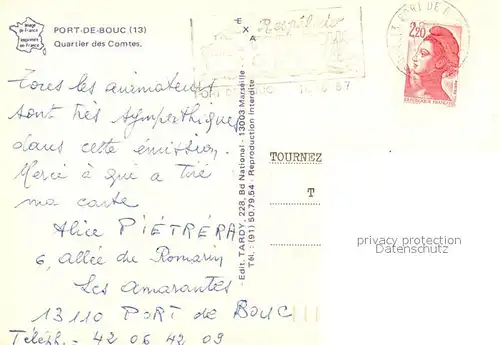 Image
de France
Imprimée
en France
PORT-DE-BOUC (13)
Quartier des Comtes.
E
X
A
PORT DE BOUC
2,20
RÉPUBLIQUE FRANÇAISE
Tous les animateurs
sont très sympathiques
dans cette émission.
Merci à qui a tiré
ma carte
Alice PIÉTRÉRA
6, allée du Romarin
Les Amarantes
13110 PORT DE BOUC
Téléph. - 42 06 42 09
- Edit. TARDY, 228, Bd National - 13003 Marseille
Tél. : (91) 50.79.54 - Reproduction Interdite
TOURNEZ
T
privacy protection
watermark